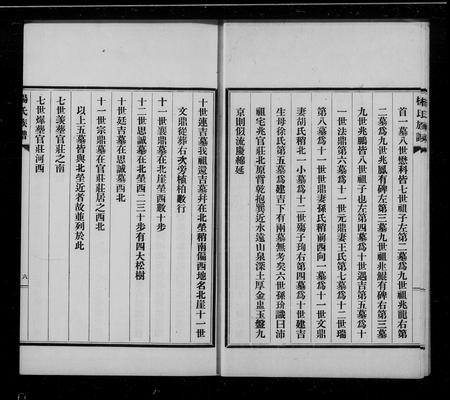 楊氏族譜
首一墓八世懋科皆七世祖子左第二墓為九世祖兆龍右第
二墓為九世兆鳳有碑左第三墓九世祖兆鯤有碑右第三墓
九世兆鵬皆八世祖子也左第四墓為十世遇吉第五墓為十
一世法鼎第六墓為十一世元鼎妻王氏第七墓為十二世瑞
第八墓為十一世世鼎妻孫氏稍前西向一墓為十一世文鼎
妻胡氏稍北一小墓為十二世殤子珣右第四墓為十世建吉
生母徐氏第五墓為建吉下有兩墓無考矣六世孫玠識曰沛
祖宅兆官莊北原背乾抱巽近水遠山泉深土厚金盅玉盤九
京則似流慶綿延
十世連吉墓我祖還吉墓幷在北塋稍南偏西地名北崖十一世
文鼎從葬右次旁植柏數行
十一世襄鼎墓在北崖塋西數十步
十二世思誠墓在北塋西二三十步有四大松樹
十世廷吉墓在思誠墓西北
十一世宗鼎墓在官莊莊居之西北
以上五墓皆與北塋近者故並列於此
七世羨塋官莊之南
七世燦塋官莊河西
楊氏族譜
六